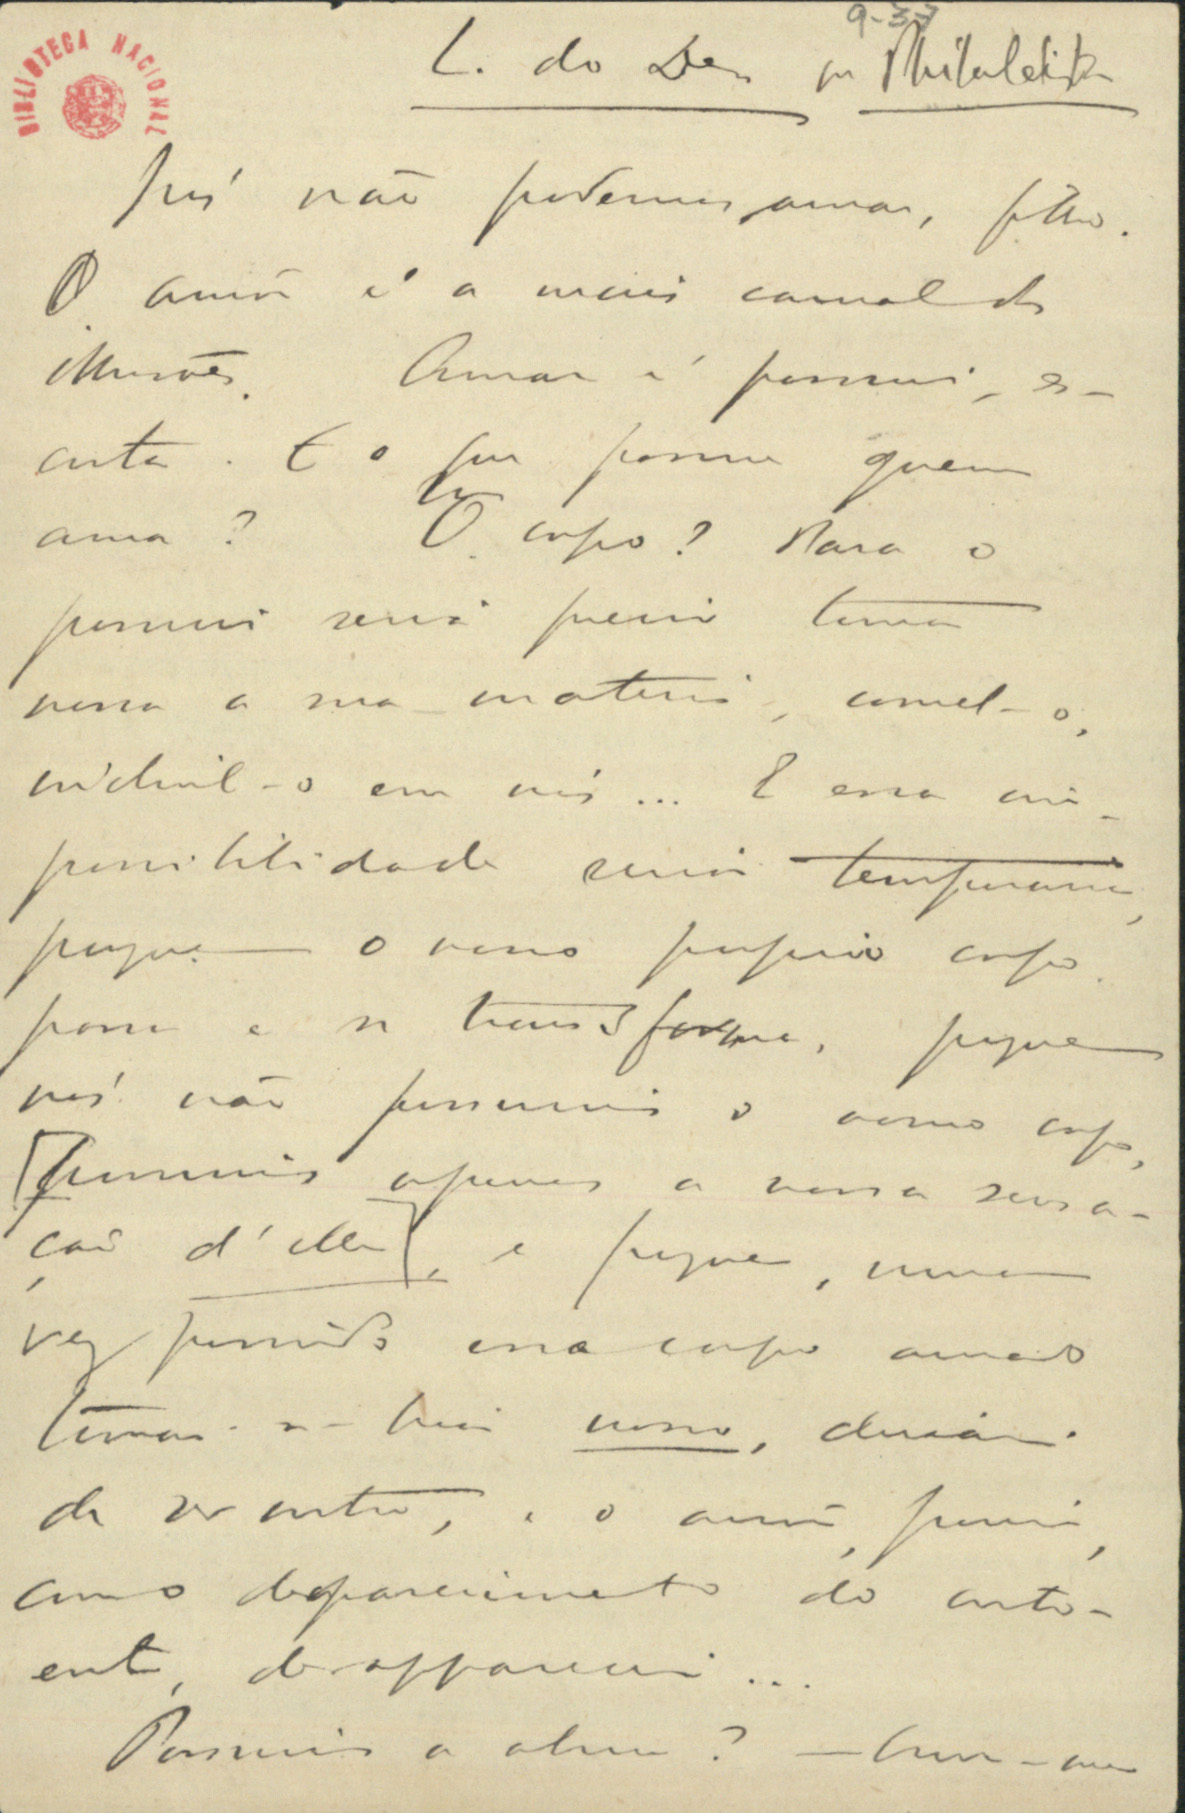 9-33
BIBLIOTECA NACIONAL
L. do Des. ou Philatelista
Nós não podemos amar, filho.
O amor é a mais carnal das
illusões. Amar é possuir, es-
cuta. E o que possue quem
ama? O corpo? Para o
possuir seria preciso tornar
nossa a sua materia, comel-o,
incluil-o em nós... E essa im-
possibilidade seria temporaria,
porque o nosso proprio corpo
passa e se transforma, porque
nós não possuimos o nosso corpo,
[possuimos apenas a nossa sensa-
ção d'elle], e porque, uma
vez possuido esse corpo amado
tornar-se-hia nosso, deixaria
de ser outro, e o amor, por isso,
com o desapparecimento do outro-
ente, desappareceria...
Possuimos a alma? — Ouve-me